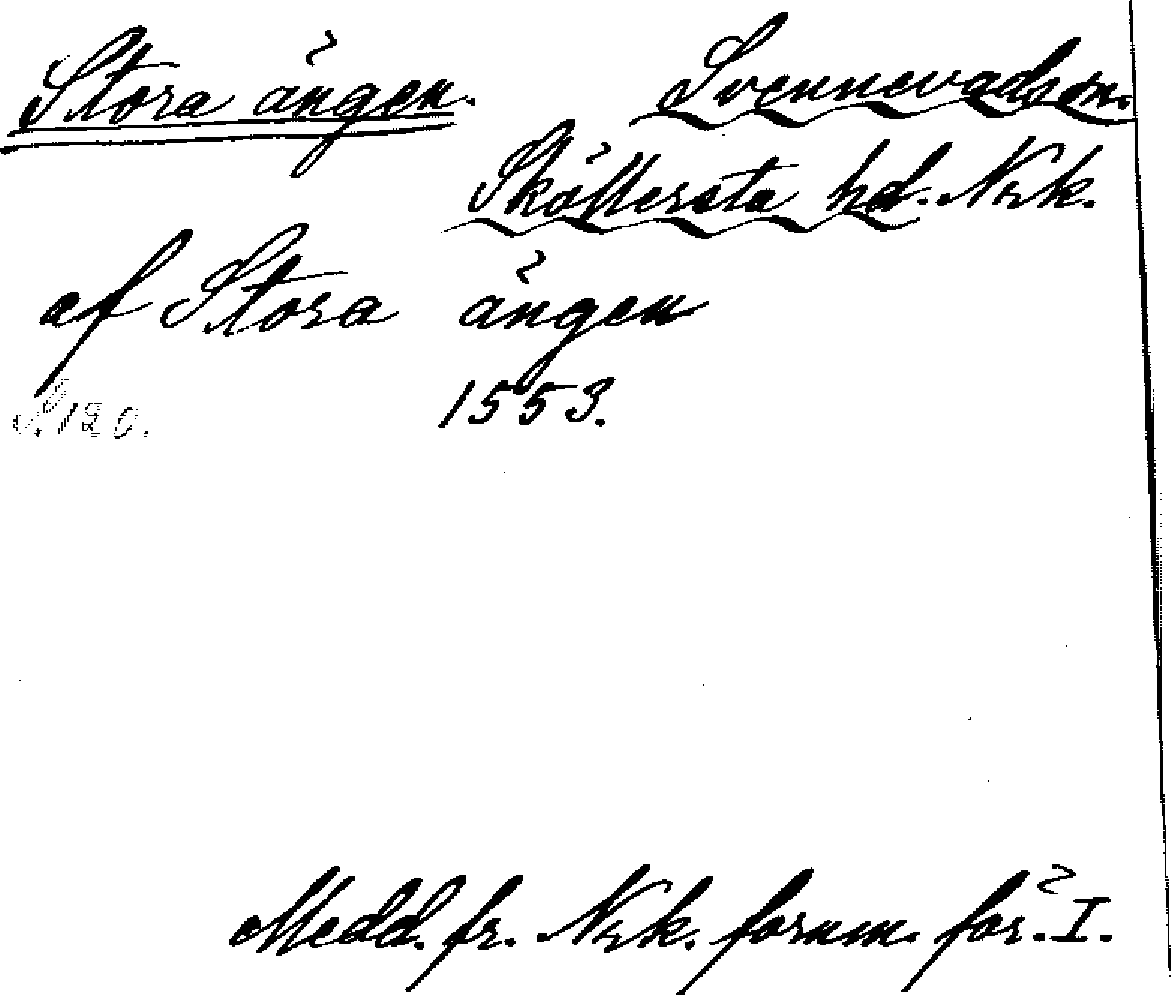 Stora ängen. Svennevads sn.
Sköllersta hd. Nrk.
af Stora ängen
S. 120. 1553.
Medd. fr. Nrk. fornm. för. I.